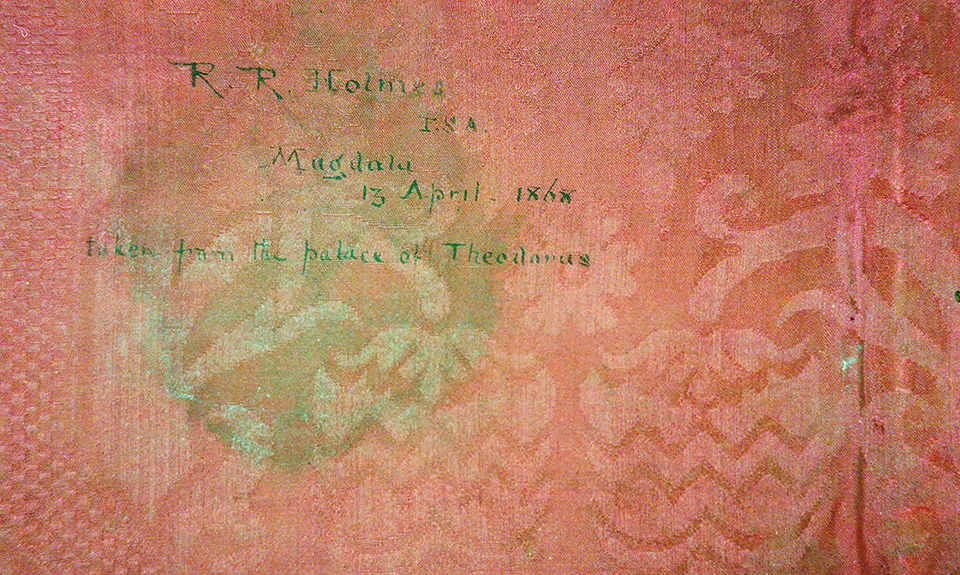 R. R. Holmes
F.S.A.
Magdala
13 April. 1868
taken from the palace of Theodorus